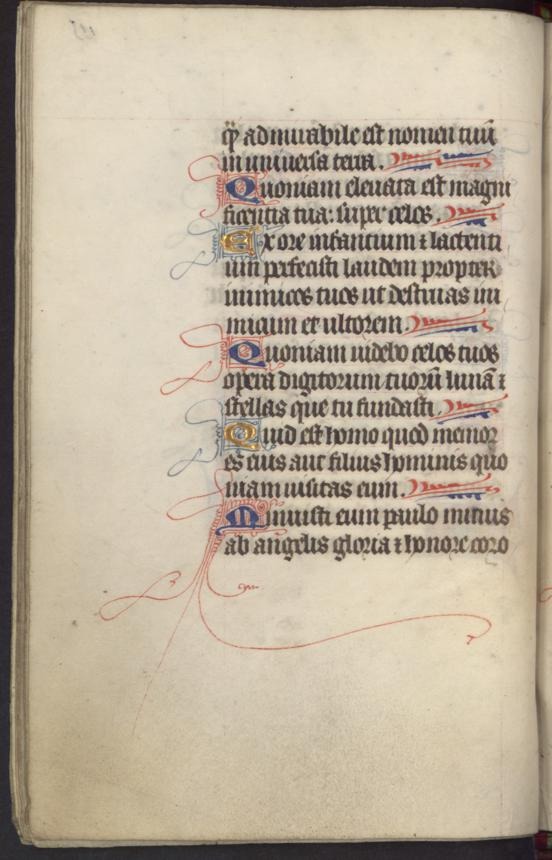 qͫ admirabile est nomen tuū
in universa terra.
Quoniam elevata est magni
ficentia tua: super celos.
Ex ore infantium ⁊ lactenti
um perfecisti laudem propter
inimicos tuos ut destruas ini
micum et ultorem.
Quoniam videbo celos tuos
opera digitorum tuorū lunā ⁊
stellas que tu fundasti.
Quid est homo quod memor
es eius aut filius hominis quo
niam visitas eum.
Minuisti eum paulo minus
ab angelis gloria ⁊ honore coro